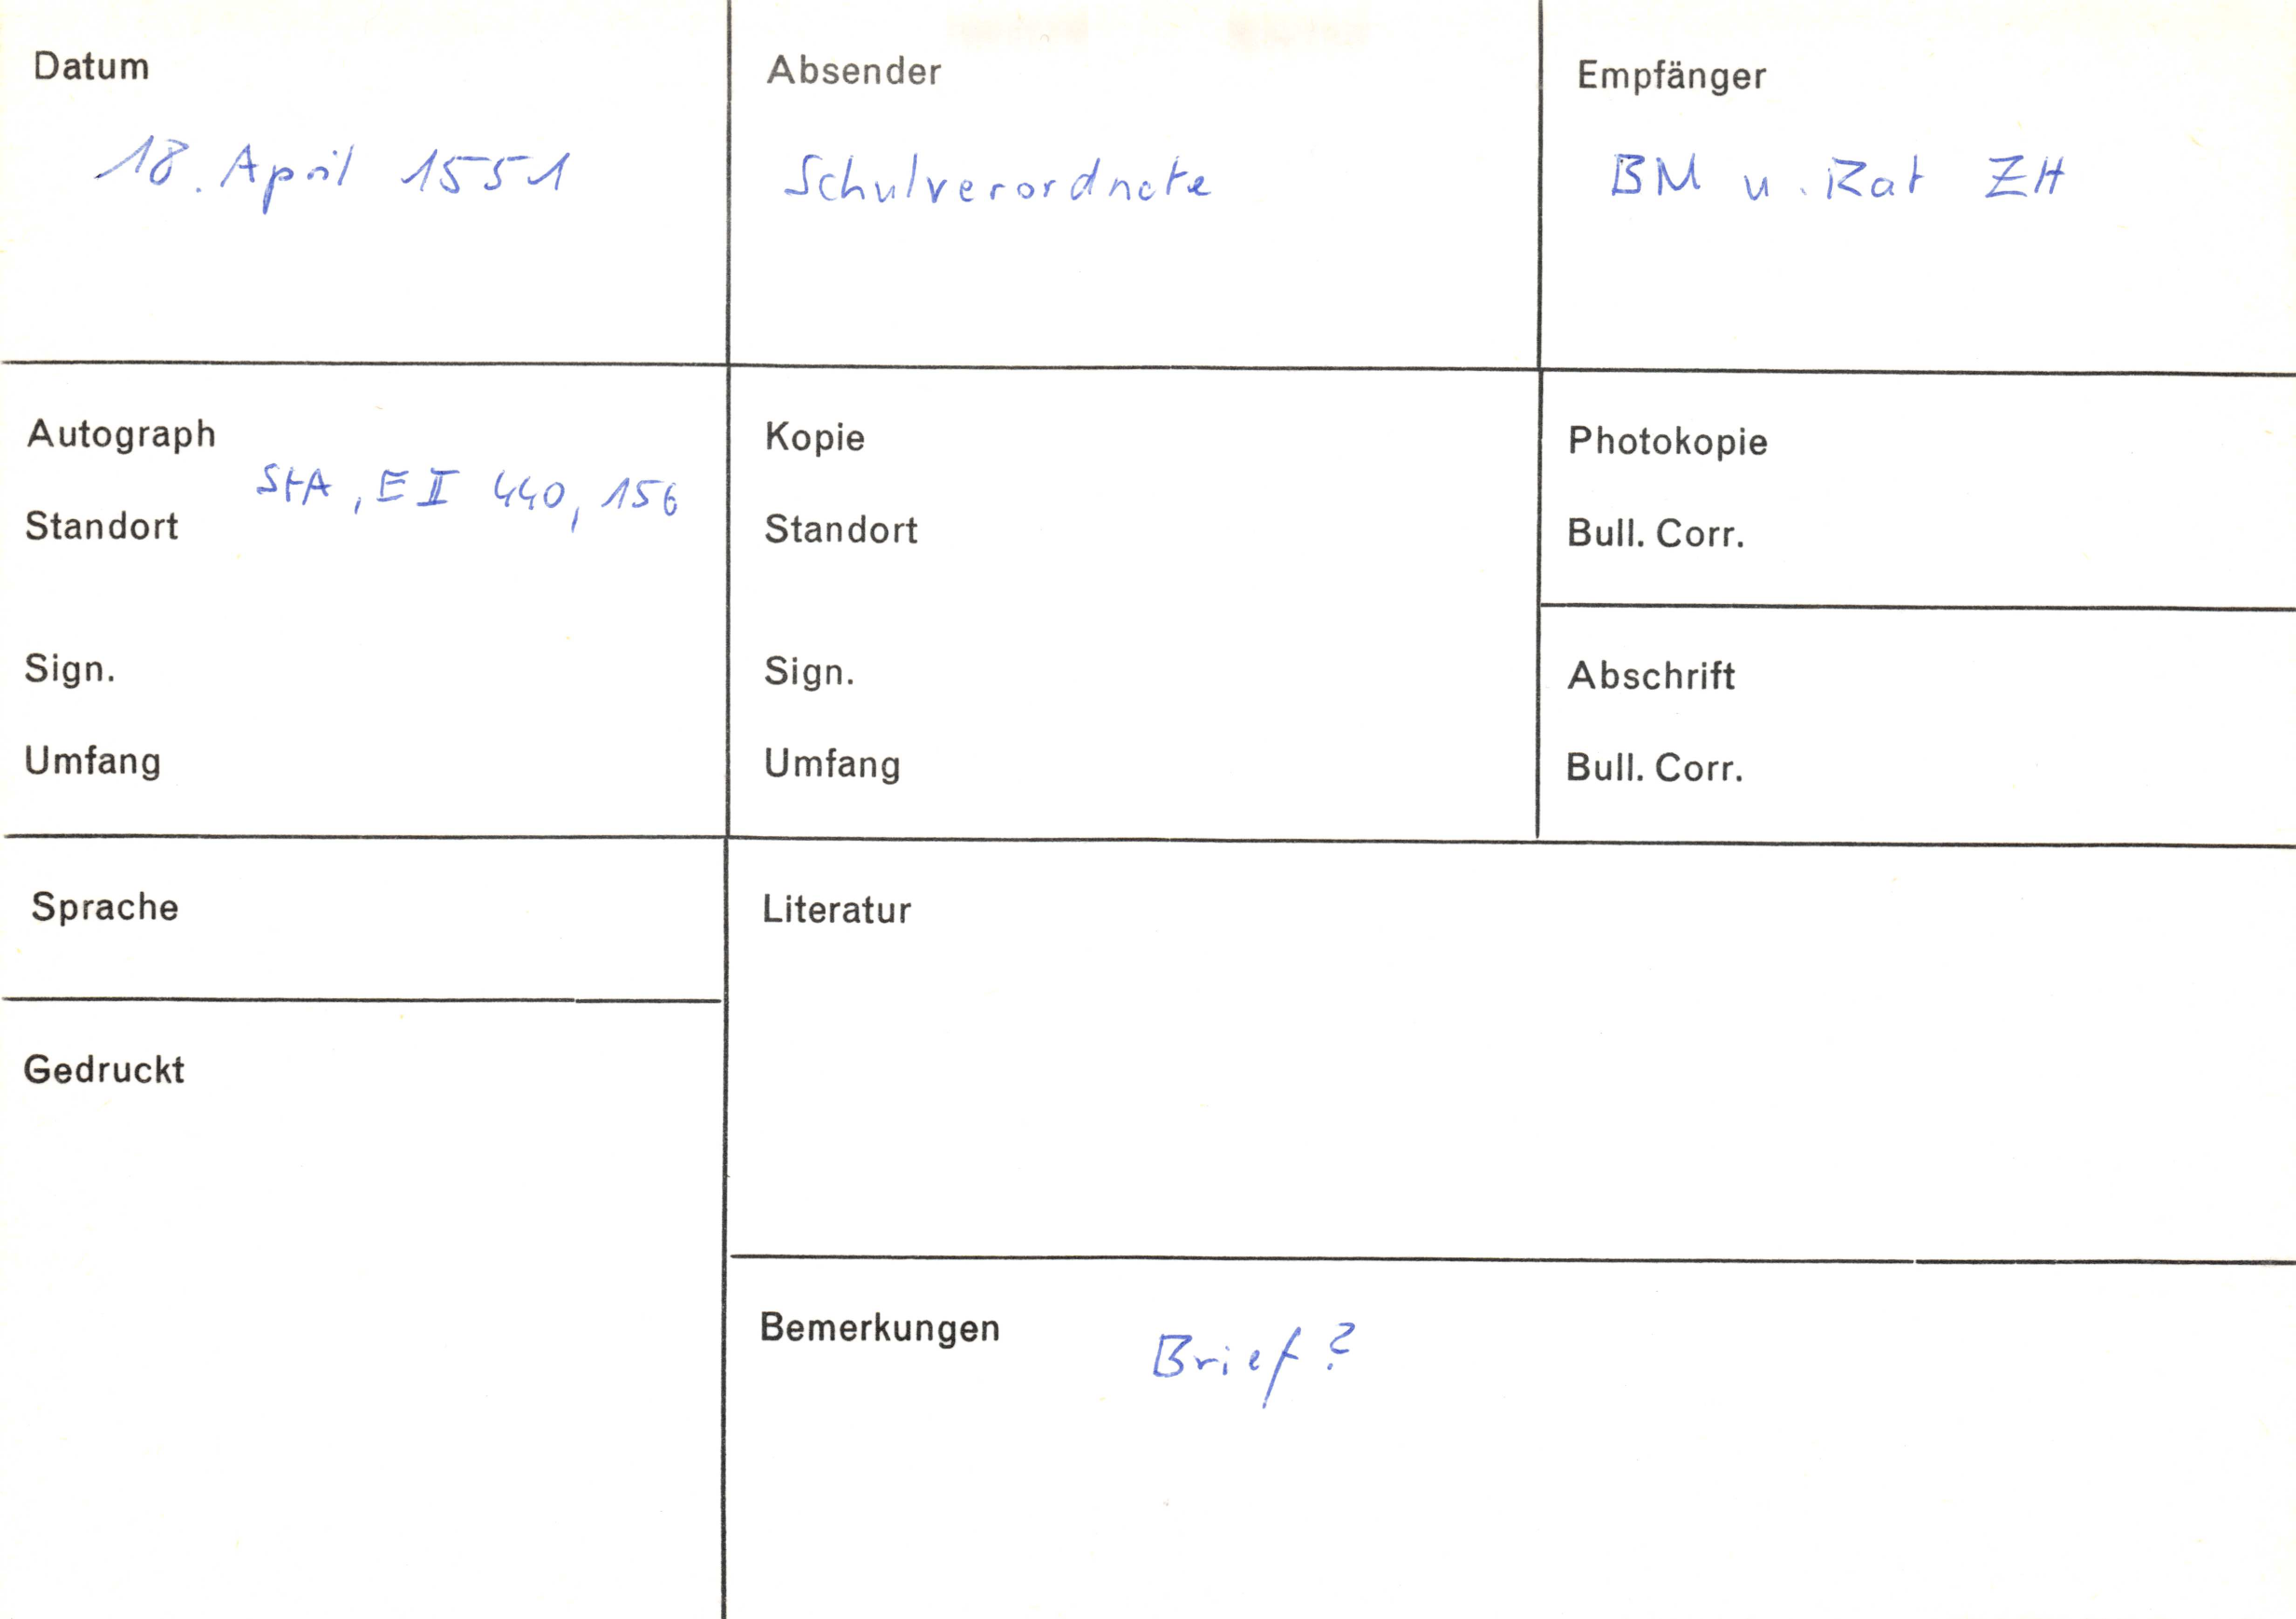 Datum
18. April 1551
Absender
Schulverordnete
Empfänger
BM u. Rat ZH
Autograph
StA, E II 440, 156
Standort
Sign.
Umfang
Kopie
Standort
Sign.
Umfang
Photokopie
Bull. Corr.
Abschrift
Bull. Corr.
Sprache
Gedruckt
Literatur
Bemerkungen
Brief?